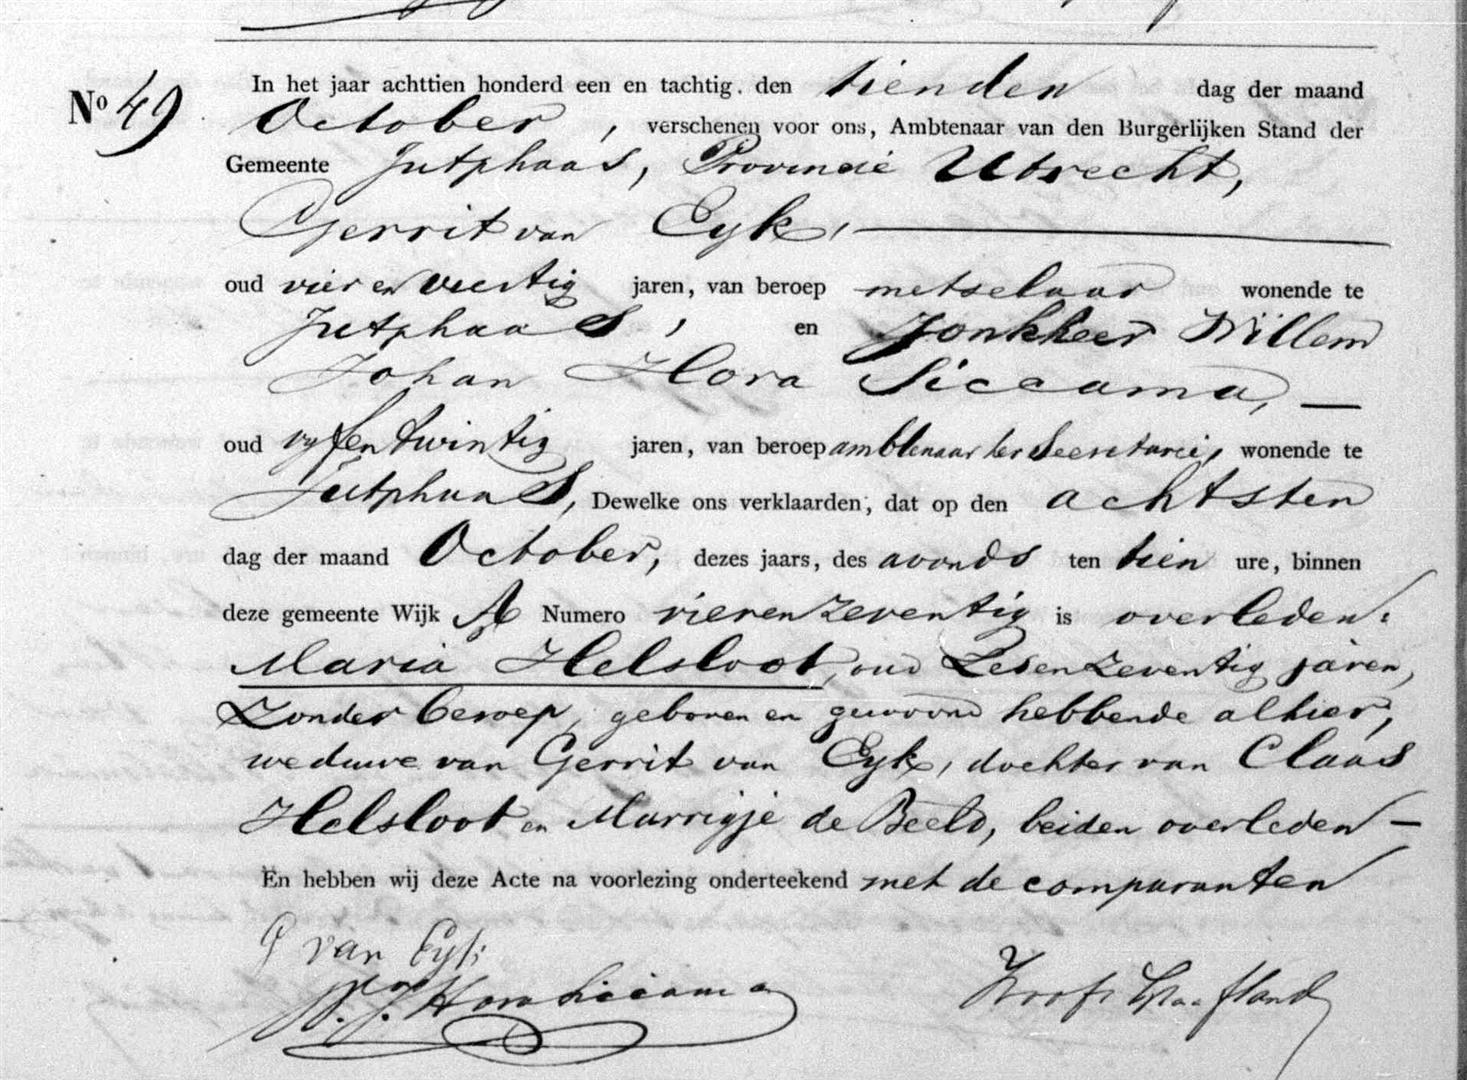 No 49
In het jaar achttien honderd een en tachtig, den tienden dag der maand
October, verschenen voor ons, Ambtenaar van den Burgerlijken Stand der
Gemeente Jutphaas, Provincie Utrecht,
Gerrit van Eyk,
oud vier en veertig jaren, van beroep metselaar wonende te
Jutphaas, en Jonkheer Willem
Johan Hora Siccama,
oud vyf en twintig jaren, van beroep ambtenaar ter Secretarie, wonende te
Jutphaas, Dewelke ons verklaarden, dat op den achtsten
dag der maand October, dezes jaars, des avonds ten tien ure, binnen
deze gemeente Wijk A Numero vierenzeventig is overleden:
Maria Helsloot, oud zevenzeventig jaren,
zonder beroep, geboren en gewoond hebbende alhier,
weduwe van Gerrit van Eyk, dochter van Claas
Helsloot en Marrigje de Beeld, beiden overleden
En hebben wij deze Acte na voorlezing onderteekend met de comparanten
G van Eyk
W. J. Hora Siccama